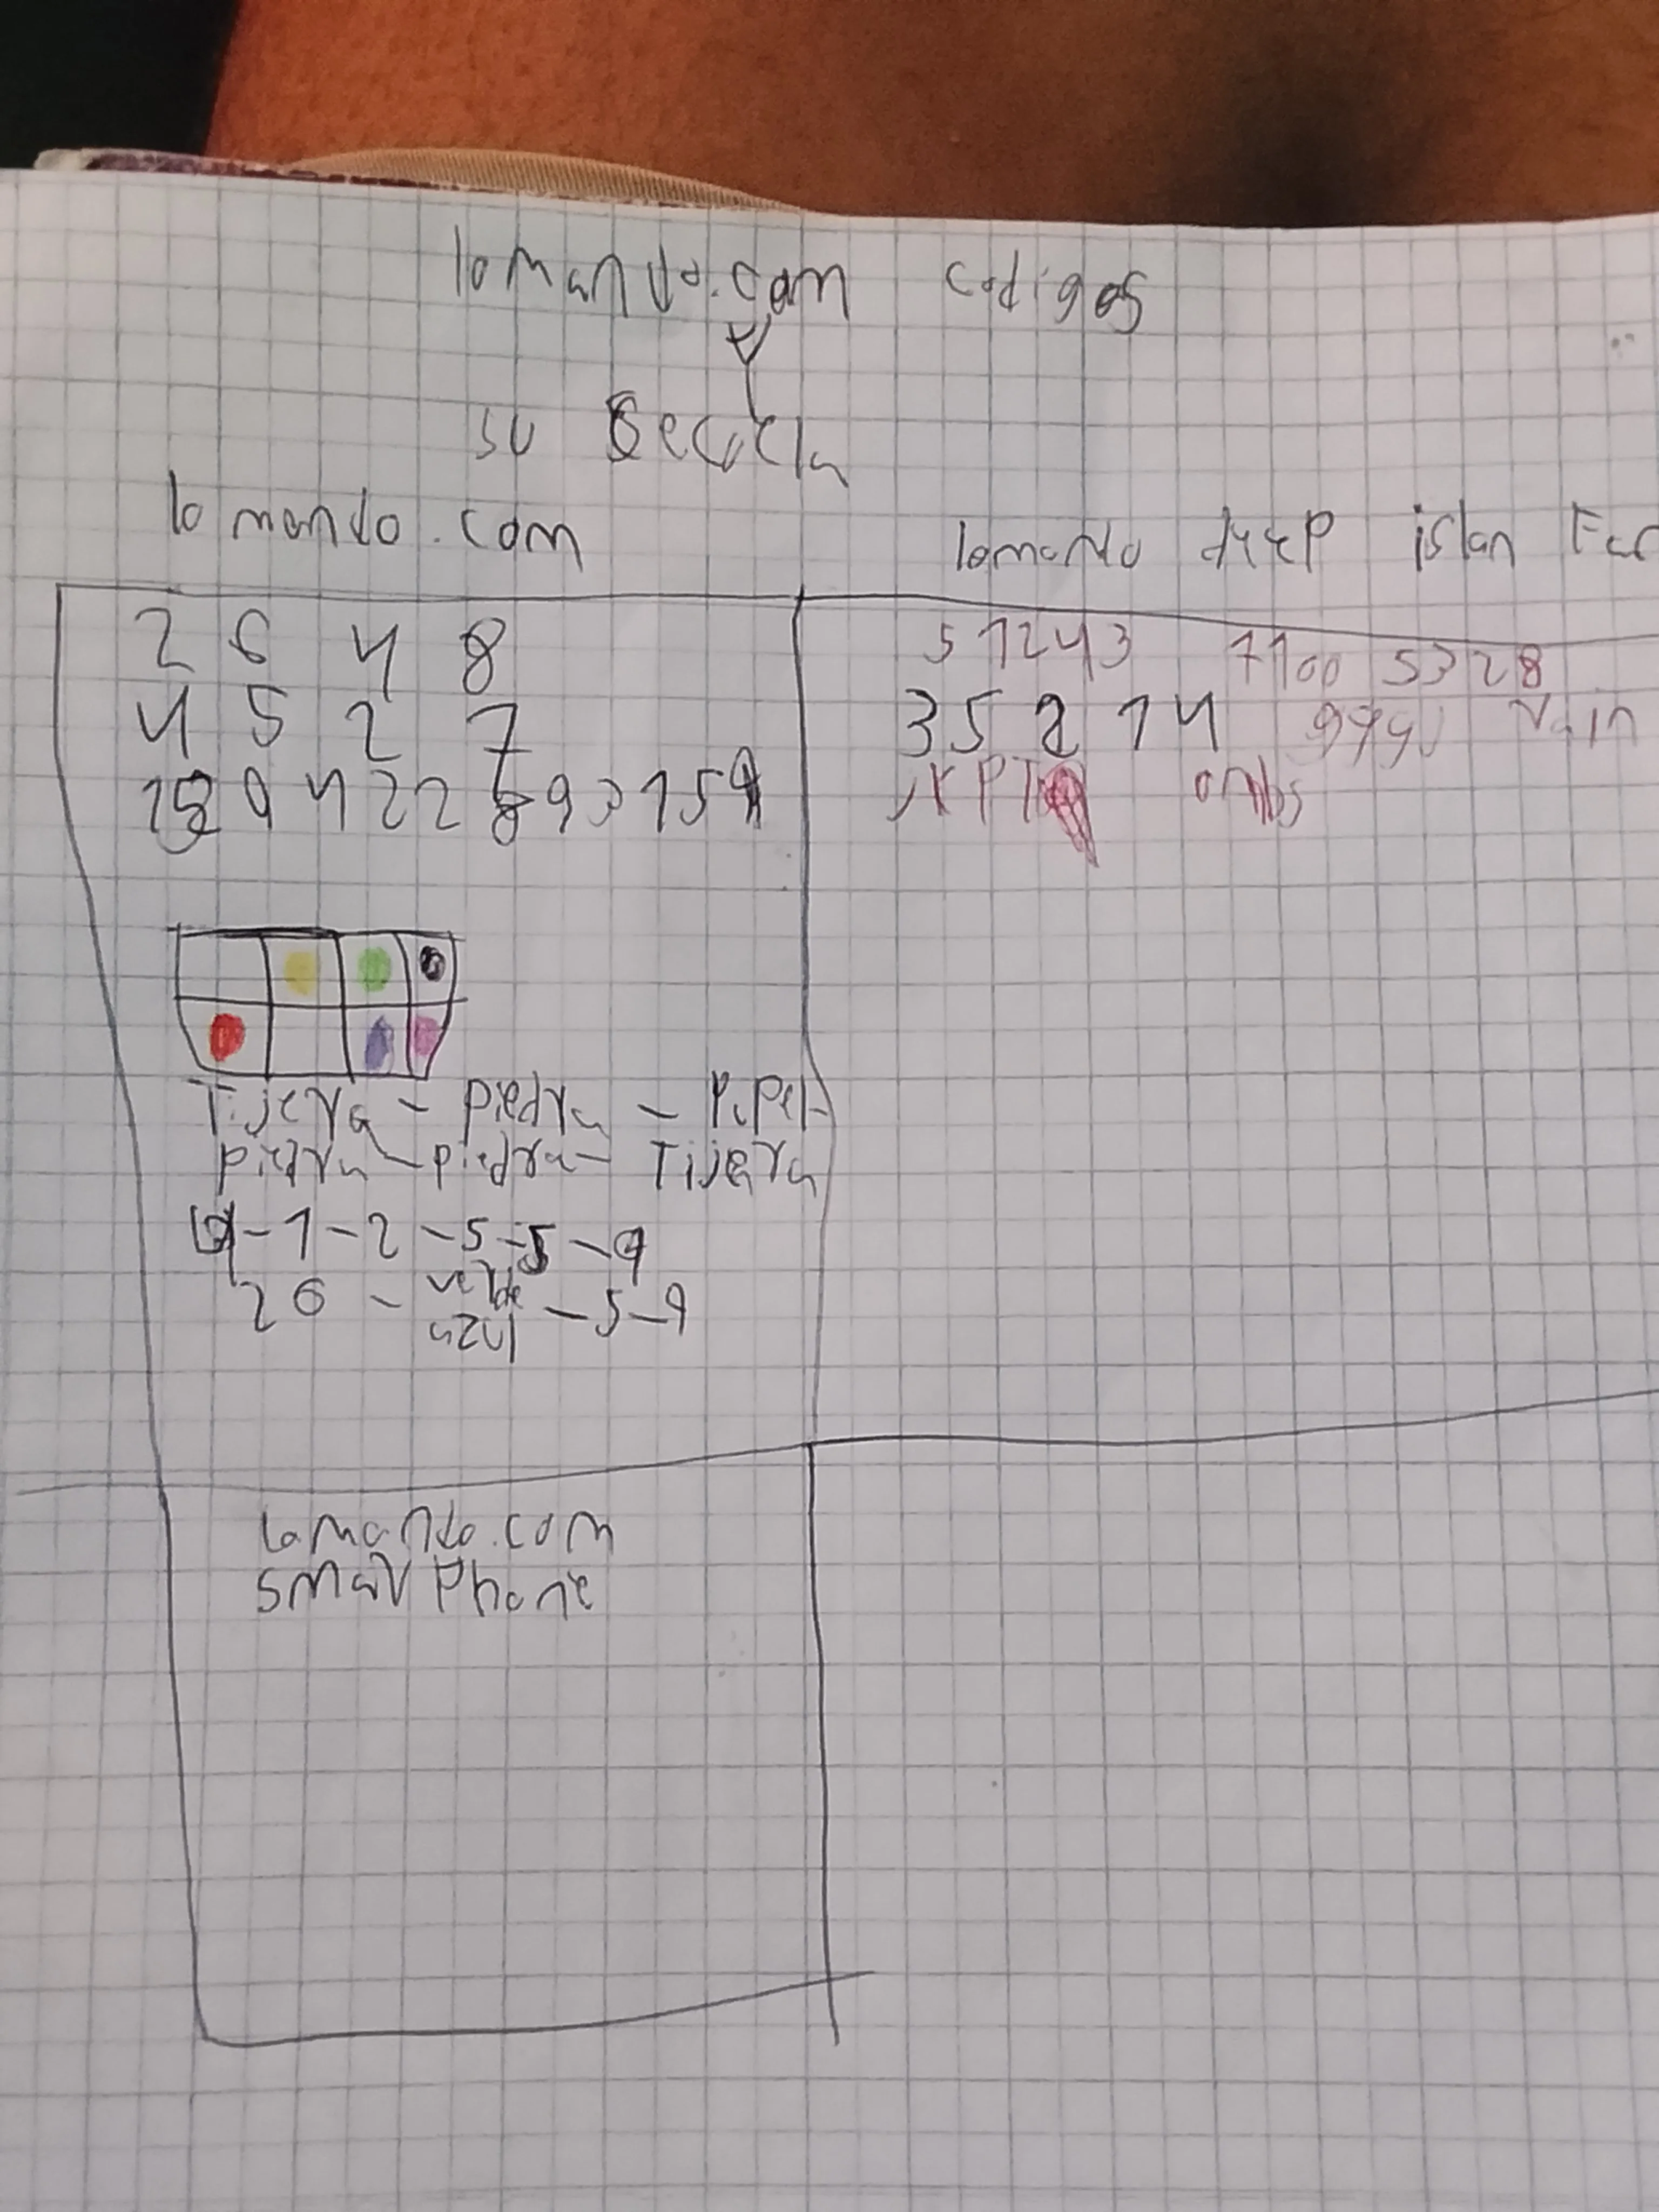 lomando.com codigos
y
su Secuela
lomando.com
2 6 4 8
4 5 2 7
9 4 2 2 8 9 3 1 5 9
Tijera - piedra - Papel-
piedra - piedra - Tijera
9 - 1 - 2 - 5 - 5 - 9
26 - verde azul - 5 - 9
lomando deep islan
5 1 2 4 3 7100 5328
3 5 2 1 4 Rain
orbs
lomando.com
smar Phone